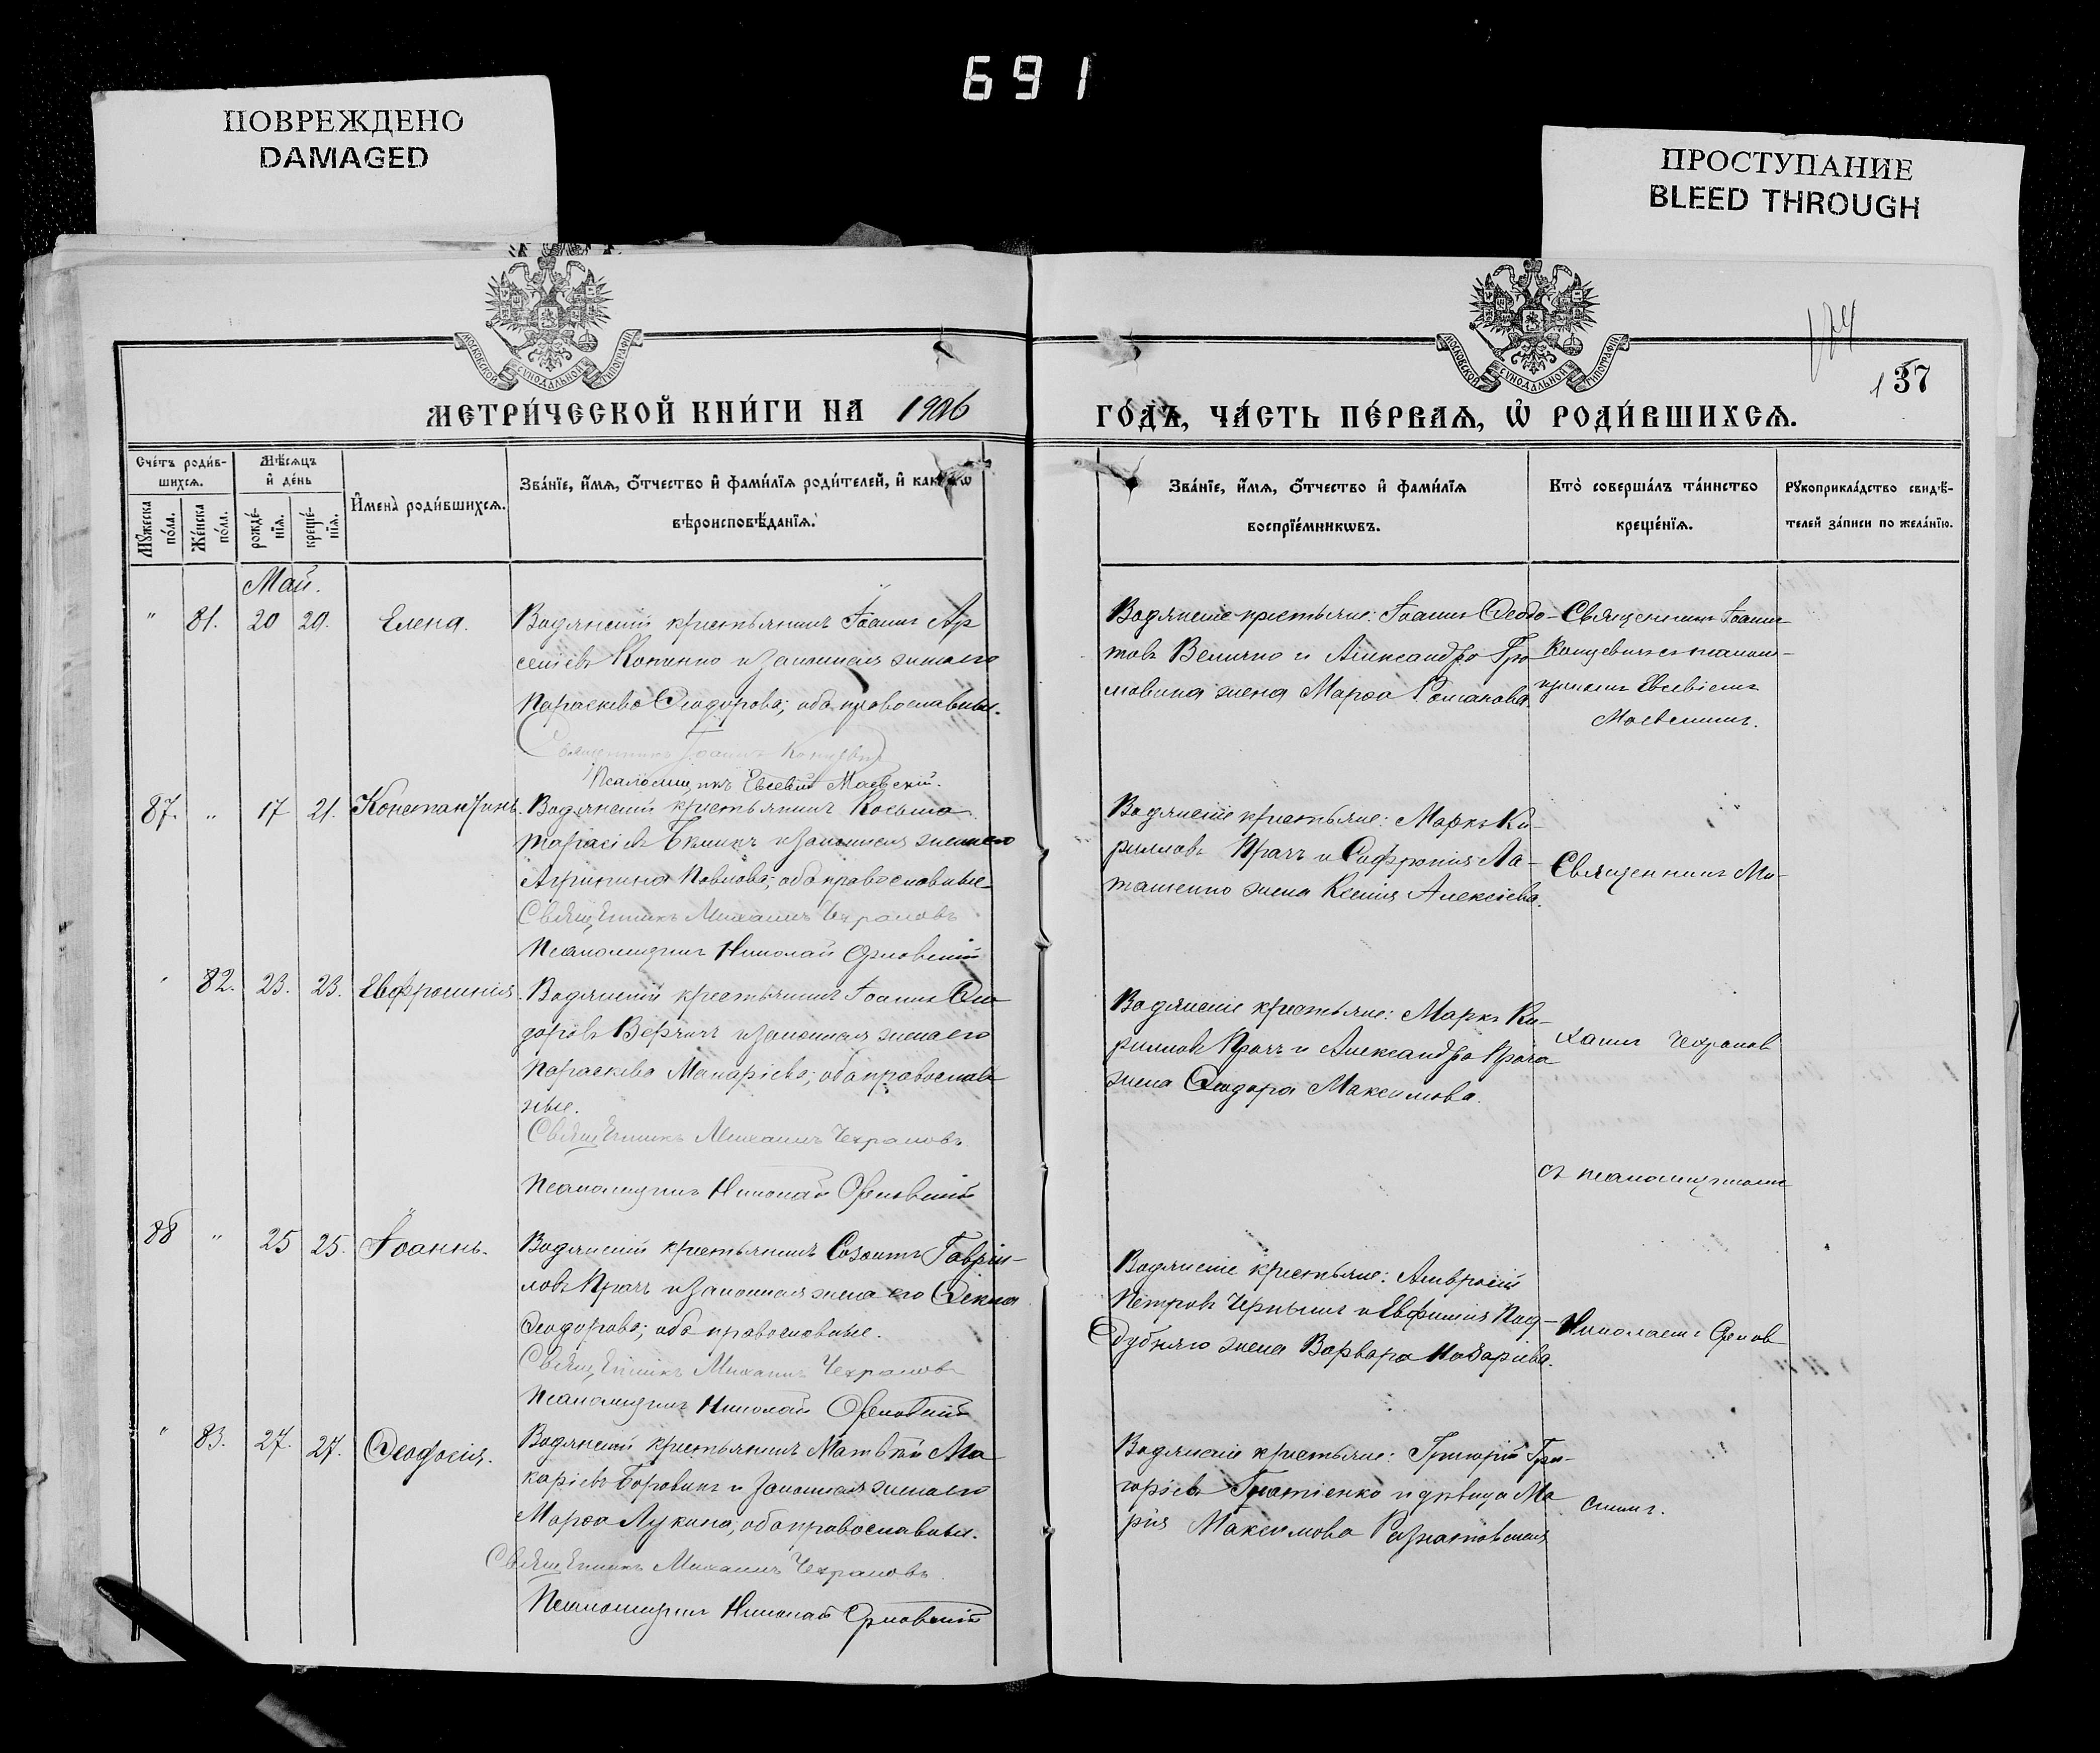 691
ПОВРЕЖДЕНО
DAMAGED
ПРОСТУПАНИЕ
BLEED THROUGH
МОСКОВСКОЙ СѴНОДАЛЬНОЙ ТИПОГРАФІИ
МОСКОВСКОЙ СѴНОДАЛЬНОЙ ТИПОГРАФІИ
174
137
МЕТРИ́ЧЕСКОЙ КНИ́ГИ НА 1906
ГО́ДЪ, ЧА́СТЬ ПЕ́РВАѦ, Ѡ҆ РОДИ́ВШИХСѦ.
Сче́тъ роди́в-
шихсѧ.
Мꙋ́жеска по́ла.
Же́нска по́ла.
Мѣ́сѧцъ
и҆ де́нь
рожде́-
нїѧ.
креще́-
нїѧ.
И҆мена̀ роди́вшихсѧ.
Зва́нїе, и҆́мѧ, ѻ҆́тчество и҆ фами́лїѧ роди́телей, и҆
вѣроисповѣ́данїѧ.
Зва́нїе, и҆́мѧ, ѻ҆́тчество и҆ фами́лїѧ
воспрїе́мникѡвъ.
Кто̀ соверша́лъ та́инство
креще́нїѧ.
Рꙋкоприкла́дство свидѣ́-
телей за́писи по жела́нїю.
Май.
" 81. 20 20. Елена.
Водянскій крестьянинъ Іоаннъ Ар
сеніевъ и законная жена его
Параскева Ѳеодорова; оба православные.
Священникъ Іоаннъ
Псаломщикъ Евсевій Маевскій.
Водянскіе крестьяне: Іоаннъ
Величко и Александра
жена Марѳа Романова.
Священникъ Іоаннъ
съ псалом-
щикомъ Евсевіемъ
Маевскимъ.
87. " 17 21. Константинъ.
Водянскій крестьянинъ Косьма
Тарасіевъ и законная жена его
Агрипина Павлова; оба православные.
Священникъ Михаилъ Чехрановъ
Псаломщикъ Николай Орловскій
Водянскіе крестьяне: Маркъ Ки-
рилловъ Прачъ и Софронія Ла-
ташенко жена Ксенія Алексіева.
Священникъ Ми-
" 82. 23. 23. Евфросинія.
Водянскій крестьянинъ Іоаннъ Ѳео
доровъ и законная жена его
Параскева Макаріева; оба православ
ные.
Священникъ Михаилъ Чехрановъ
Псаломщикъ Николай Орловскій
Водянскіе крестьяне: Маркъ Ки-
рилловъ Прачъ и Александра Прача
жена Ѳеодора Максимова.
хаилъ Чехранов
съ псаломщикомъ
88 " 25 25. Іоаннъ.
Водянскій крестьянинъ Созонтъ Гавріи-
ловъ Прачъ и законная жена его Ѳекла
Ѳеодорова; оба православные.
Священникъ Михаилъ Чехрановъ
Псаломщикъ Николай Орловскій
Водянскіе крестьяне: Амвросій
Петровъ Чернышъ и Евфимія Под-
дубняго жена Варвара Назаріева.
Николаемъ Орлов
" 83. 27. 27. Ѳеодосія.
Водянскій крестьянинъ Матвѣй Ма
каріевъ Боровикъ и законная жена его
Марѳа Лукина; оба православные.
Священникъ Михаилъ Чехрановъ
Псаломщикъ Николай Орловскій
Водянскіе крестьяне: Григорій Гри-
горіевъ Игнатіенко и дѣвица Ма
рія Максимова
скимъ.